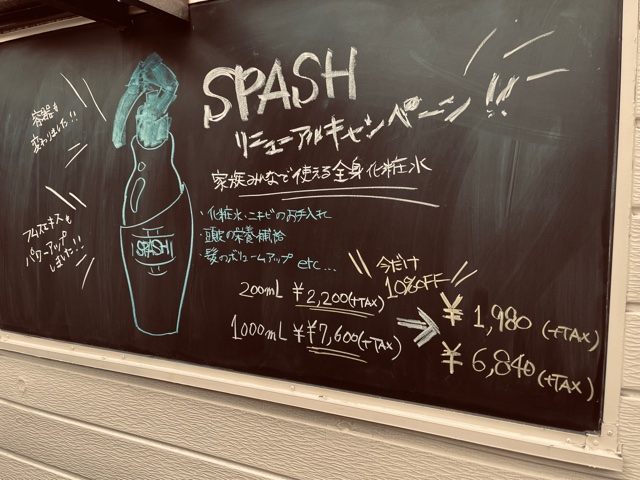 SPASH
リニューアルキャンペーン!!
家族みんなで使える全身化粧水
・化粧水・ニキビのお手入れ
・頭皮の栄養補給
・髪のボリュームアップ etc...
今だけ
10%OFF
200mL ¥2,200(+TAX)
1000mL ¥¥7,600(+TAX)
¥1,980(+TAX)
¥6,840(+TAX)
容器も
変わりました!!
フムスエキスも
パワーアップ
しました!!
SPASH